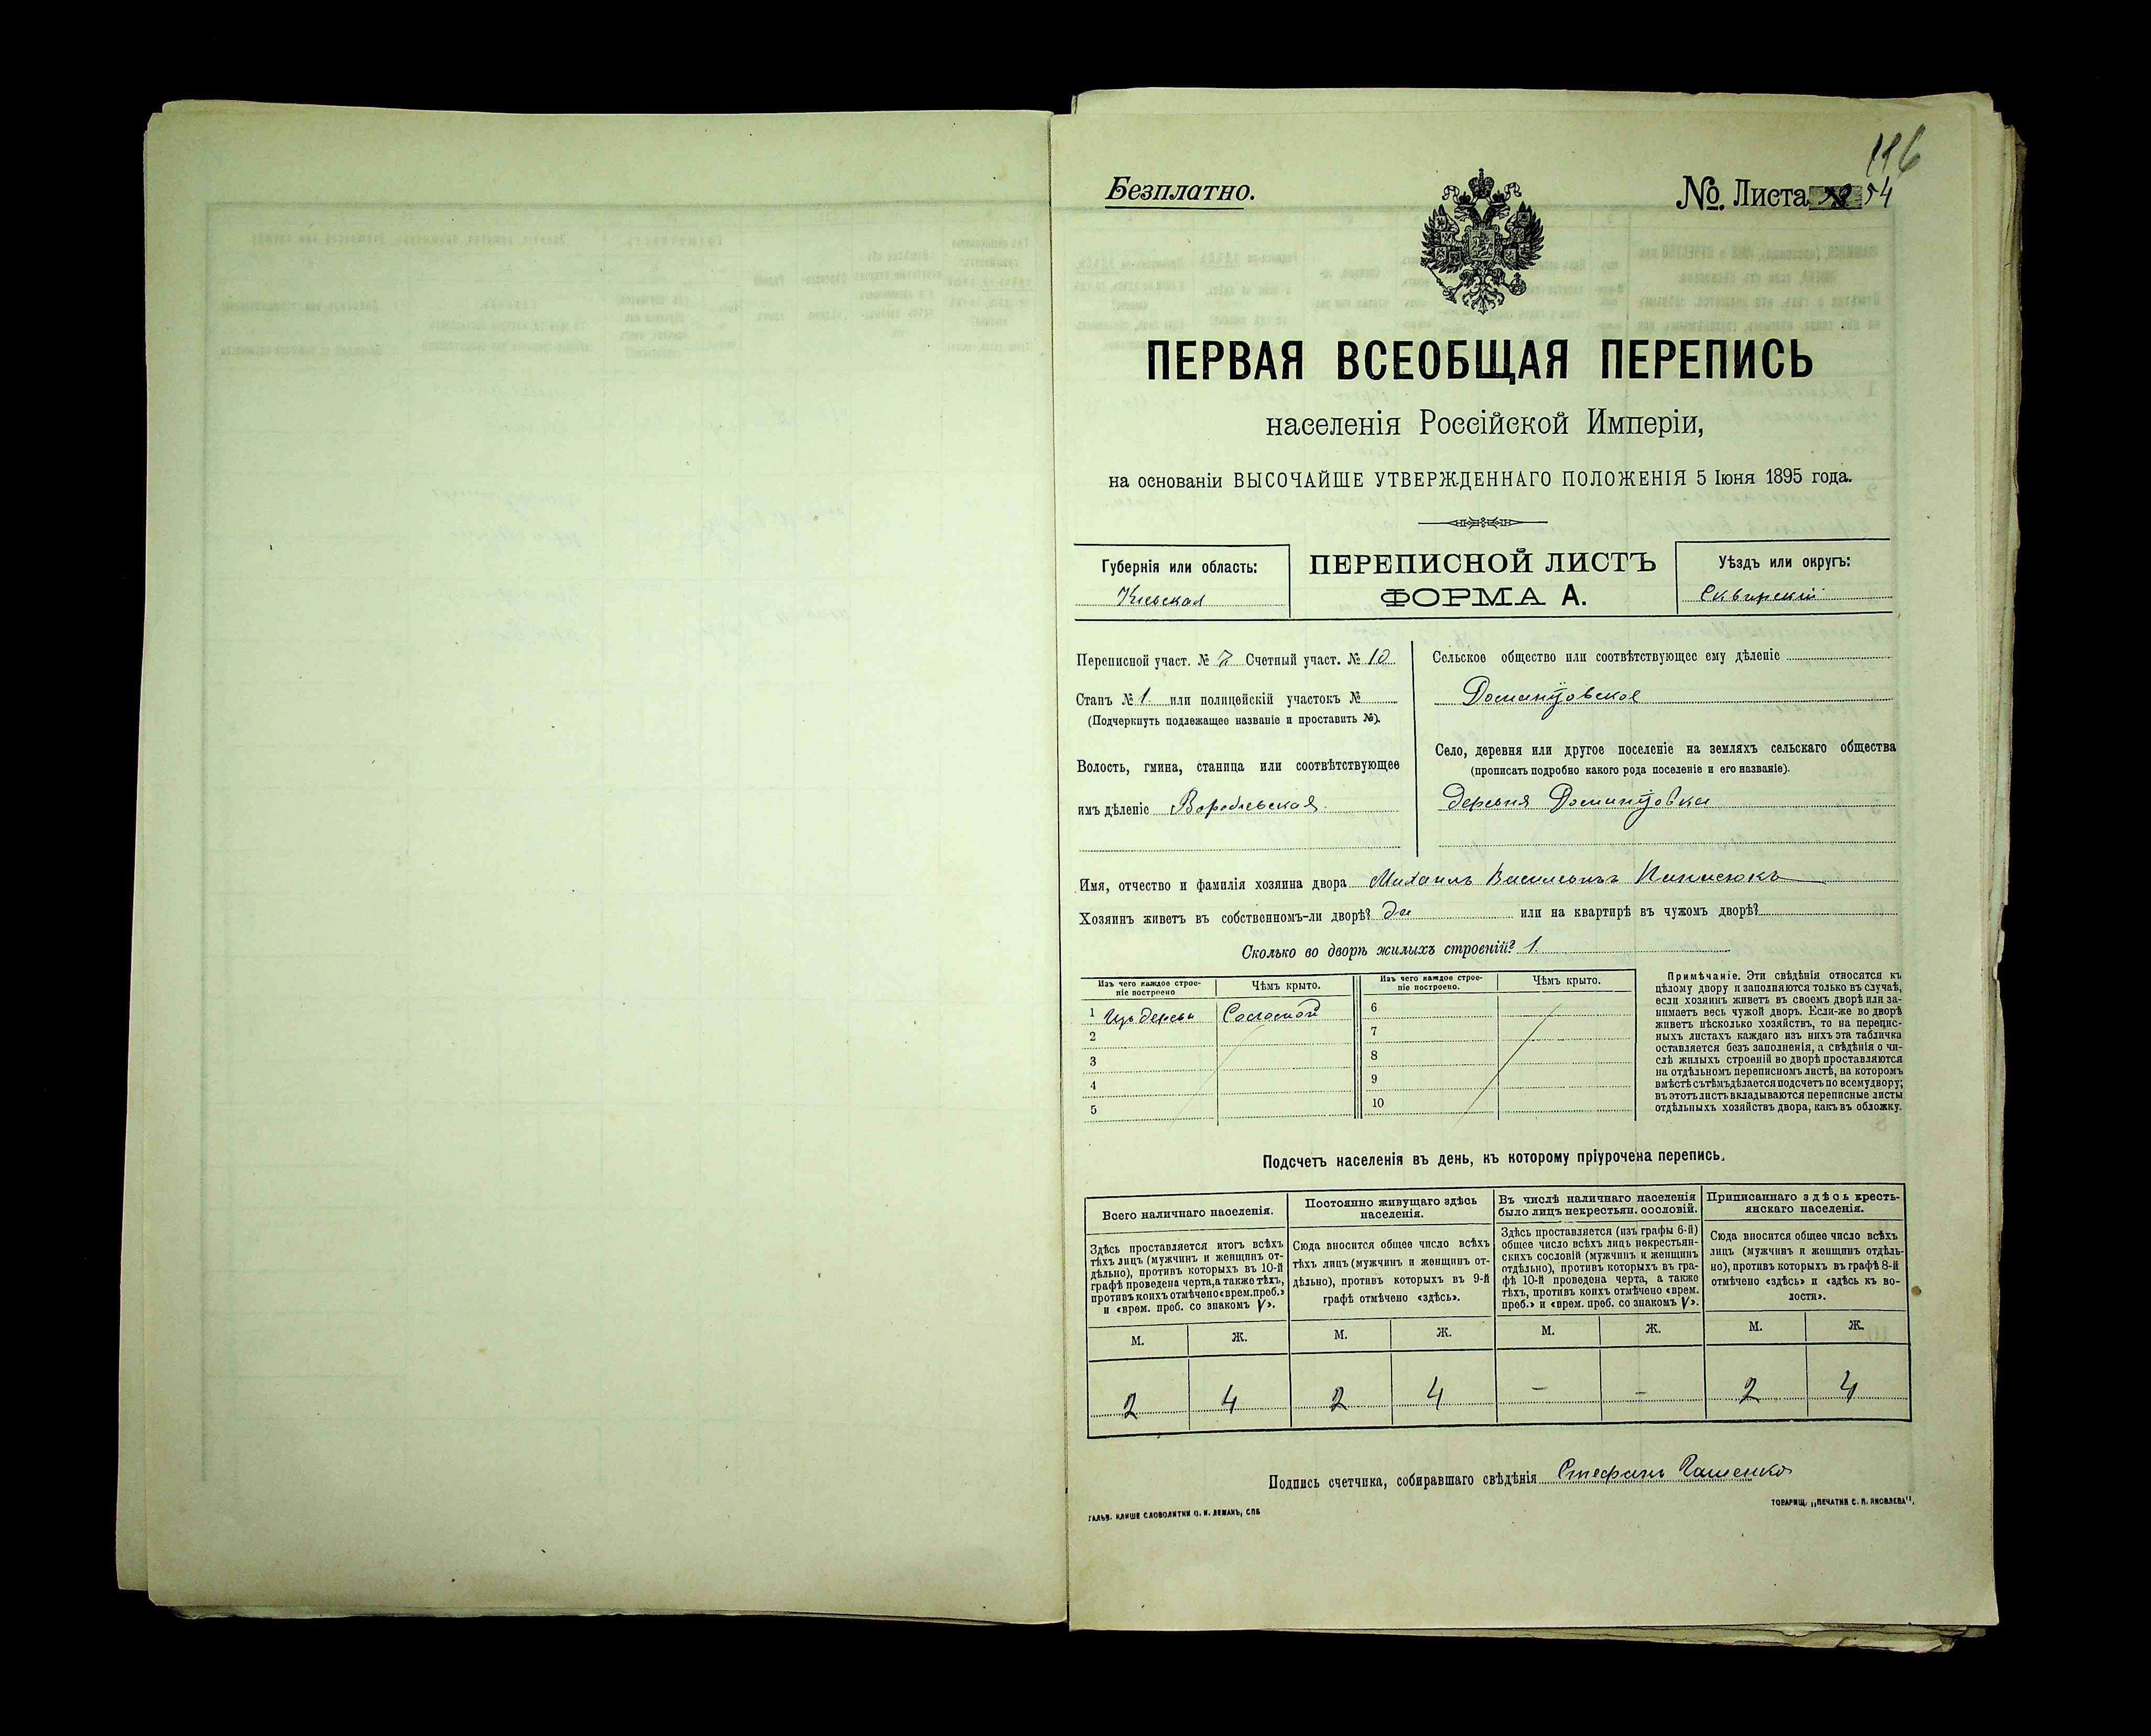 116
Безплатно.
№. Листа 54
ПЕРВАЯ ВСЕОБЩАЯ ПЕРЕПИСЬ
населенія Россійской Имперіи,
на основаніи ВЫСОЧАЙШЕ УТВЕРЖДЕННАГО ПОЛОЖЕНІЯ 5 Іюня 1895 года.
Губернія или область:
Кіевская
ПЕРЕПИСНОЙ ЛИСТЪ
ФОРМА А.
Уѣздъ или округъ:
Сквирскій
Переписной участ. № 7 Счетный участ. № 10
Станъ № 1. или полицейскій участокъ №
(Подчеркнуть подлежащее названіе и проставить №).
Волость, гмина, станица или соотвѣтствующее
имъ дѣленіе
Сельское общество или соотвѣтствующее ему дѣленіе
Село, деревня или другое поселеніе на земляхъ сельскаго общества
(прописать подробно какого рода поселеніе и его названіе).
деревня
Имя, отчество и фамилія хозяина двора Михаилъ Васильевъ
Хозяинъ живетъ въ собственномъ-ли дворѣ? да или на квартирѣ въ чужомъ дворѣ?
Сколько во дворѣ жилыхъ строеній? 1.
Изъ чего каждое строе-
ніе построено
Чѣмъ крыто.
Изъ чего каждое строе-
ніе построено.
Чѣмъ крыто.
1 Изъ дерева Соломой
2
3
4
5
6
7
8
9
10
Примѣчаніе. Эти свѣдѣнія относятся къ
цѣлому двору и заполняются только въ случаѣ,
если хозяинъ живетъ въ своемъ дворѣ или за-
нимаетъ весь чужой дворъ. Если-же во дворѣ
живетъ нѣсколько хозяйствъ, то на перепис-
ныхъ листахъ каждаго изъ нихъ эта табличка
оставляется безъ заполненія, а свѣдѣнія о чи-
слѣ жилыхъ строеній во дворѣ проставляются
на отдѣльномъ переписномъ листѣ, на которомъ
вмѣстѣ съ тѣмъ дѣлается подсчетъ по всему двору;
въ этотъ листъ вкладываются переписные листы
отдѣльныхъ хозяйствъ двора, какъ въ обложку.
Подсчетъ населенія въ день, къ которому пріурочена перепись.
Всего наличнаго населенія.
Здѣсь проставляется итогъ всѣхъ
тѣхъ лицъ (мужчинъ и женщинъ от-
дѣльно), противъ которыхъ въ 10-й
графѣ проведена черта, а также тѣхъ,
противъ коихъ отмѣчено «врем. преб.»
и «врем. преб. со знакомъ V».
Постоянно живущаго здѣсь
населенія.
Сюда вносится общее число всѣхъ
тѣхъ лицъ (мужчинъ и женщинъ от-
дѣльно), противъ которыхъ въ 9-й
графѣ отмѣчено «здѣсь».
Въ числѣ наличнаго населенія
было лицъ некрестьян. сословій.
Здѣсь проставляется (изъ графы 6-й)
общее число всѣхъ лицъ некрестьян-
скихъ сословій (мужчинъ и женщинъ
отдѣльно), противъ которыхъ въ гра-
фѣ 10-й проведена черта, а также
тѣхъ, противъ коихъ отмѣчено «врем.
преб.» и «врем. преб. со знакомъ V».
Приписаннаго здѣсь кресть-
янскаго населенія.
Сюда вносится общее число всѣхъ
лицъ (мужчинъ и женщинъ отдѣль-
но), противъ которыхъ въ графѣ 8-й
отмѣчено «здѣсь» и «здѣсь къ во-
лости».
М. Ж. М. Ж. М. Ж. М. Ж.
2 4 2 4 - - 2 4
Подпись счетчика, собиравшаго свѣдѣнія Стефанъ
ГАЛЬВ. КЛИШЕ СЛОВОЛИТНИ О. И. ЛЕМАНЪ, СПБ
ТОВАРИЩ. „ПЕЧАТНЯ С. П. ЯКОВЛЕВА".